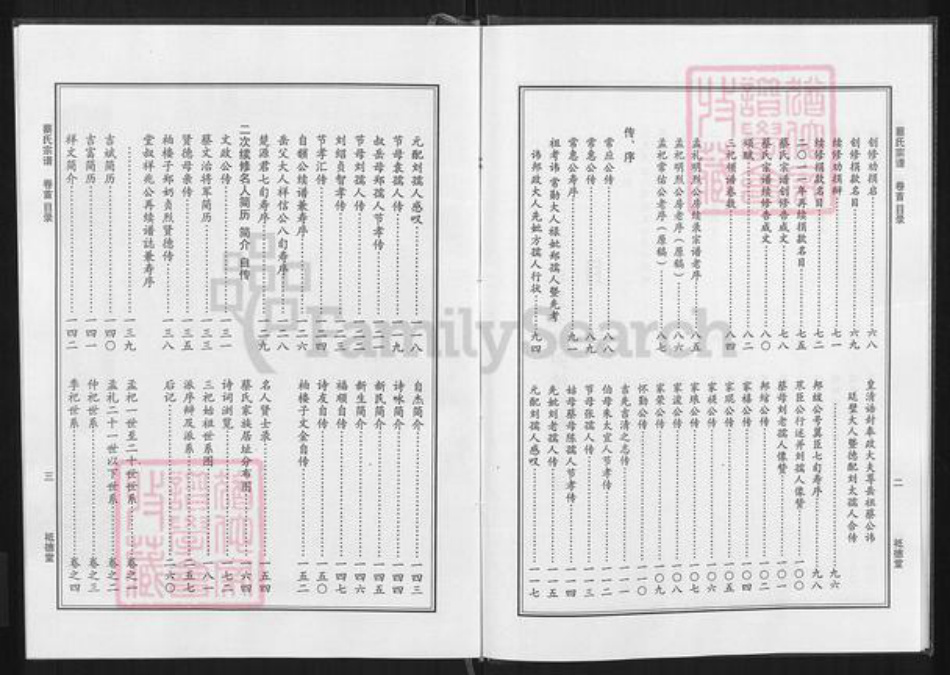 蔡氏宗谱 卷首 目录
创修劝捐启……六八
创修捐款名目……六九
续修劝捐辩……七一
续修捐款名目……七二
二〇一一年再续捐款名目……七五
蔡氏宗谱创修告成文……七八
蔡氏宗谱续修告成文……八〇
颂赋……八二
三祀领谱卷数……八四
孟礼明烈公房续录宗谱老序……八五
孟祀明烈公房老序（原稿）……八六
孟祀常佑公老序（原稿）……八七
传、序
常应公传……八八
常惠公传……八九
常惠公寿序……九一
祖考讳常勤大人禄妣郑孺人暨先考
讳邦政大人先妣方孺人行状……九四
皇清诰封奉政大夫尊岳祖蔡公讳
廷璧大人暨德配刘太孺人合传……九六
邦级公号翼臣七旬寿序……九八
羽臣公行述并刘孺人像赞……一〇〇
蔡母刘老孺人像赞……一〇一
邦绾公传……一〇二
家禧公传……一〇四
家琨公传……一〇五
家祯公传……一〇六
家琅公传……一〇七
家浚公传……一〇八
家荣公传……一〇九
怀勤公传……一一〇
吉先吉清之志传……一一一
伯母朱太宜人节孝传……一一二
节母张孺人传……一一三
姑母蔡母陈孺人节孝传……一一四
先妣刘老孺人传……一一五
元配刘孺人感叹……一一七
二
祗德堂
元配刘孺人感叹……一一八
节母袁孺人传……一一九
叔岳母郑孺人节孝传……一二一
节母刘孺人传……一二二
刘绍贞智孝传……一二三
节孝汇传……一二四
自镇公续谱兼寿序……一二六
岳父大人祥信公八旬寿序……一二八
楚源君七旬寿序……一二九
二次续修名人简历 简介 自传
文政公传……一三一
蔡文治将军简历……一三三
贤德母亲传……一三五
柏楼子郑奶贞烈贤德传……一三八
堂叔祥兆公再续谱誌兼寿序
……一三九
吉斌简历……一四〇
吉富简历……一四一
祥文简介……一四二
自杰简介……一四三
诗咏简介……一四四
新民简介……一四五
新生简介……一四六
福顺自传……一四七
诗友自传……一五〇
柏楼子文金自传……一五二
名人贤士录……一五四
蔡氏家族居址分布图……一六四
诗词浏览……一七二
三祀始祖世系图……一八一
派序辩及派系……二五七
后记……二六〇
孟祀一世至二十世世系……卷之一
孟礼二十一世以下世系……卷之二
仲祀世系……卷之三
季祀世系……卷之四
蔡氏宗谱 卷首 目录
三
祗德堂
FamilySearch